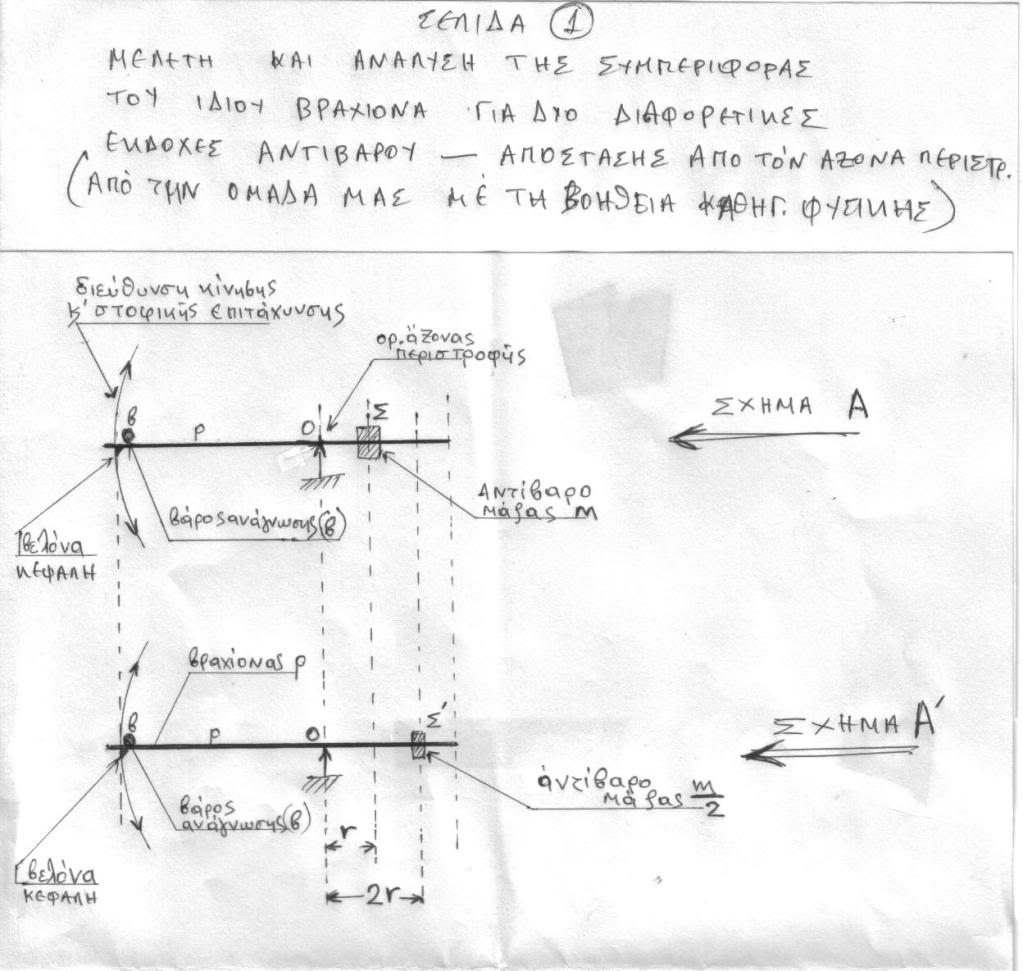 ΣΕΛΙΔΑ 1
ΜΕΛΕΤΗ ΚΑΙ ΑΝΑΛΥΣΗ ΤΗΣ ΣΥΜΠΕΡΙΦΟΡΑΣ
ΤΟΥ ΙΔΙΟΥ ΒΡΑΧΙΟΝΑ ΓΙΑ ΔΥΟ ΔΙΑΦΟΡΕΤΙΚΕΣ
ΕΚΔΟΧΕΣ ΑΝΤΙΒΑΡΟΥ — ΑΠΟΣΤΑΣΗΣ ΑΠΟ ΤΌΝ ΑΞΟΝΑ ΠΕΡΙΣΤΡ.
(ΑΠΌ ΤΗΝ ΟΜΑΔΑ ΜΑΣ ΜΈ ΤΗ ΒΟΗΘΕΙΑ ΚΑΘΗΓ. ΦΥΣΙΚΗΣ)
διεύθυνση κίνησης
κ' στοφικής επιτάχυνσης
ορ. άξονας
περιστροφής
ΣΧΗΜΑ Α
β
ρ
Ο
Σ
Αντίβαρο
μάζας m
βάρος ανάγνωσης (β)
βελόνα
ΚΕΦΑΛΗ
βραχίονας ρ
ΣΧΗΜΑ Α'
β
ρ
Ο
Σ'
αντίβαρο
μάζας m/2
βάρος
ανάγνωσης (β)
r
βελόνα
ΚΕΦΑΛΗ
2r